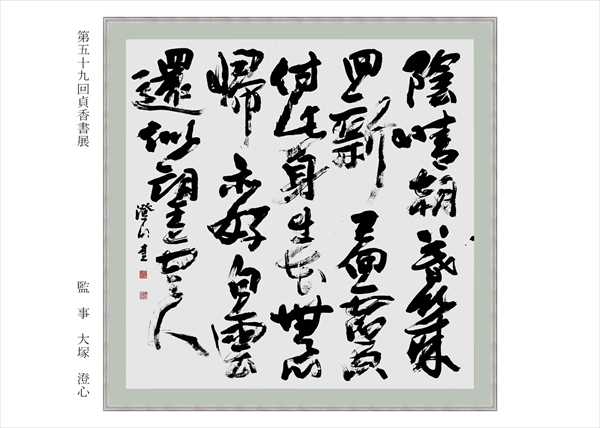 陰晴朝暮幾
回新已向虚空
付此身出本無心
帰亦好白雲
還似望雲人
澄心書
第五十九回貞香書展
監事 大塚 澄心